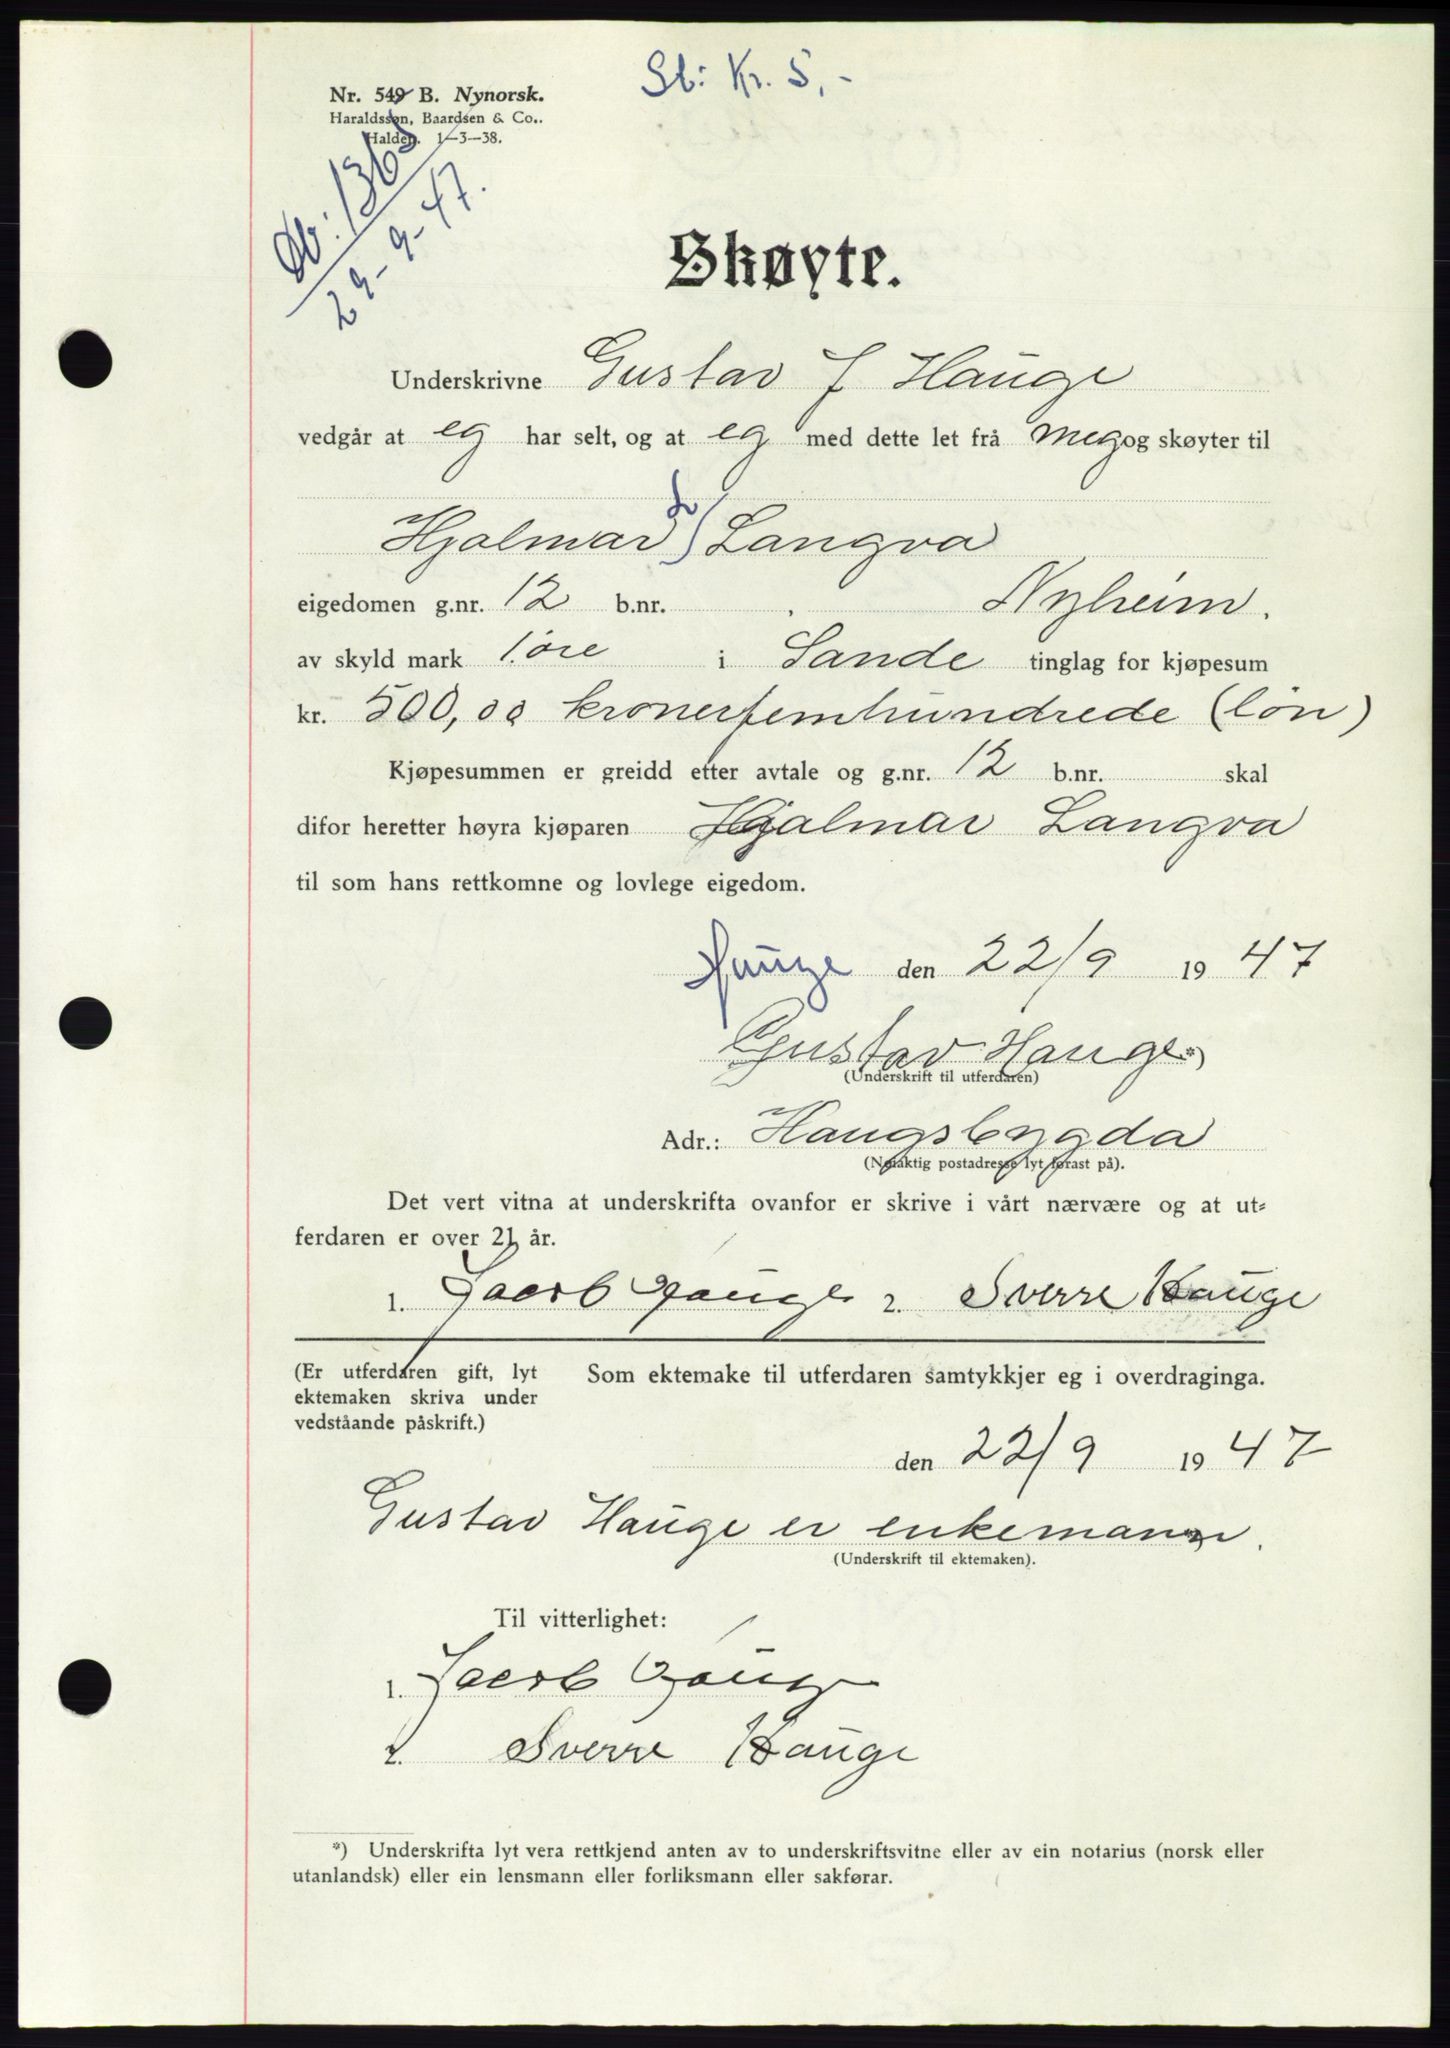 Sb: Kr. 5,-
Nr. 549 B. Nynorsk.
Haraldssøn, Baardsen & Co..
Halden. 1–3–38.
Db: 1365
29-9-47.
Skøyte.
Underskrivne Gustav J Hauge
vedgår at eg har selt, og at eg med dette let frå meg og skøyter til
Hjalmar Langva
eigedomen g.nr. 12 b.nr. . Nyheim.
av skyld mark 1 øre i Sande tinglag for kjøpesum
kr. 500,00 kronerfemhundrede (løn)
Kjøpesummen er greidd etter avtale og g.nr. 12 b.nr. skal
difor heretter høyra kjøparen Hjalmar Langva
til som hans rettkomne og lovlege eigedom.
Hauge den 22/9 1947
Gustav Hauge *)
(Underskrift til utferdaren)
Adr.: Haugsbygda
(Nøiaktig postadresse lyt førast på).
Det vert vitna at underskrifta ovanfor er skrive i vårt nærvære og at ut-
ferdaren er over 21 år.
1. Jacob Hauge 2. Sverre Hauge
(Er utferdaren gift, lyt
ektemaken skriva under
vedståande påskrift.)
Som ektemake til utferdaren samtykkjer eg i overdraginga.
den 22/9 1947
Gustav Hauge er enkemann.
(Underskrift til ektemaken).
Til vitterlighet:
1. Jacob Hauge
2. Sverre Hauge
*) Underskrifta lyt vera rettkjend anten av to underskriftsvitne eller av ein notarius (norsk eller
utanlandsk) eller ein lensmann eller forliksmann eller sakførar.